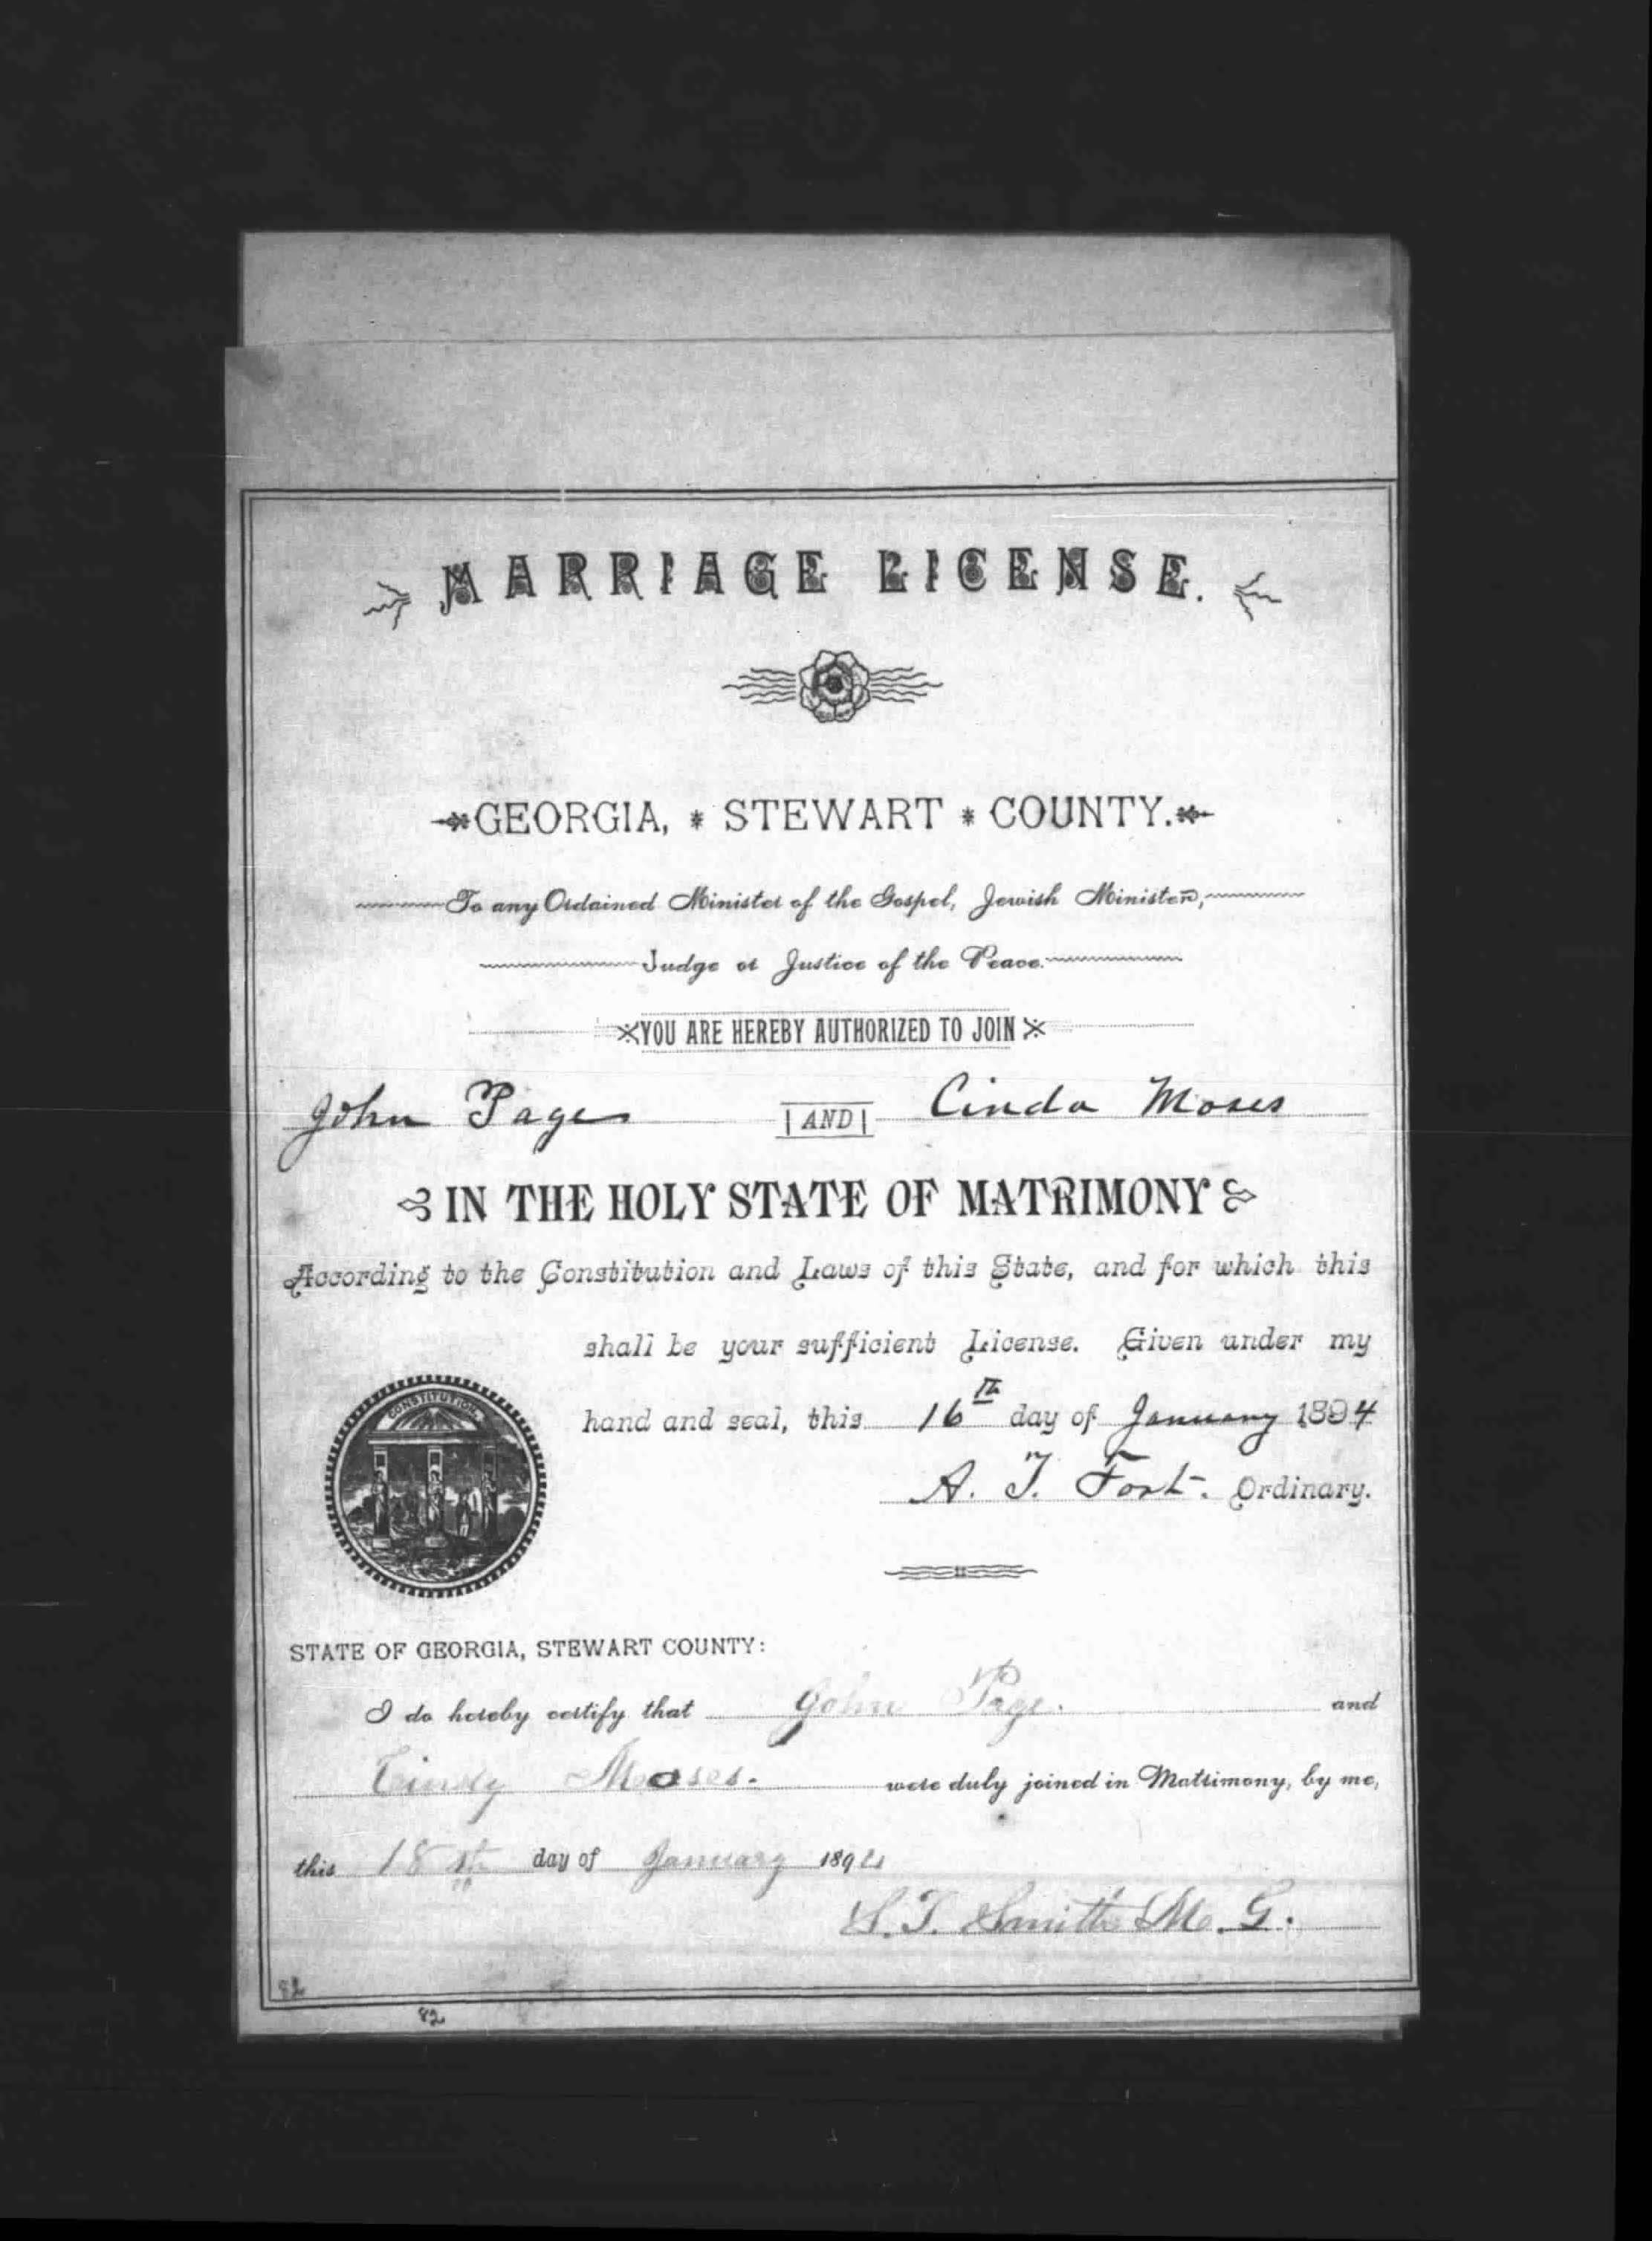 MARRIAGE LICENSE.
GEORGIA, * STEWART * COUNTY.
To any Ordained Minister of the Gospel, Jewish Minister,
Judge or Justice of the Peace.
YOU ARE HEREBY AUTHORIZED TO JOIN
John Page AND Cinda Moses
IN THE HOLY STATE OF MATRIMONY
According to the Constitution and Laws of this State, and for which this
shall be your sufficient License. Given under my
CONSTITUTION
hand and seal, this 16th day of January 1894
A. T. Fort. Ordinary.
STATE OF GEORGIA, STEWART COUNTY:
I do hereby certify that John Page. and
Cindy Moses. were duly joined in Matrimony, by me,
this 18th day of January 1894
S. T. Smith M. G.
82
82